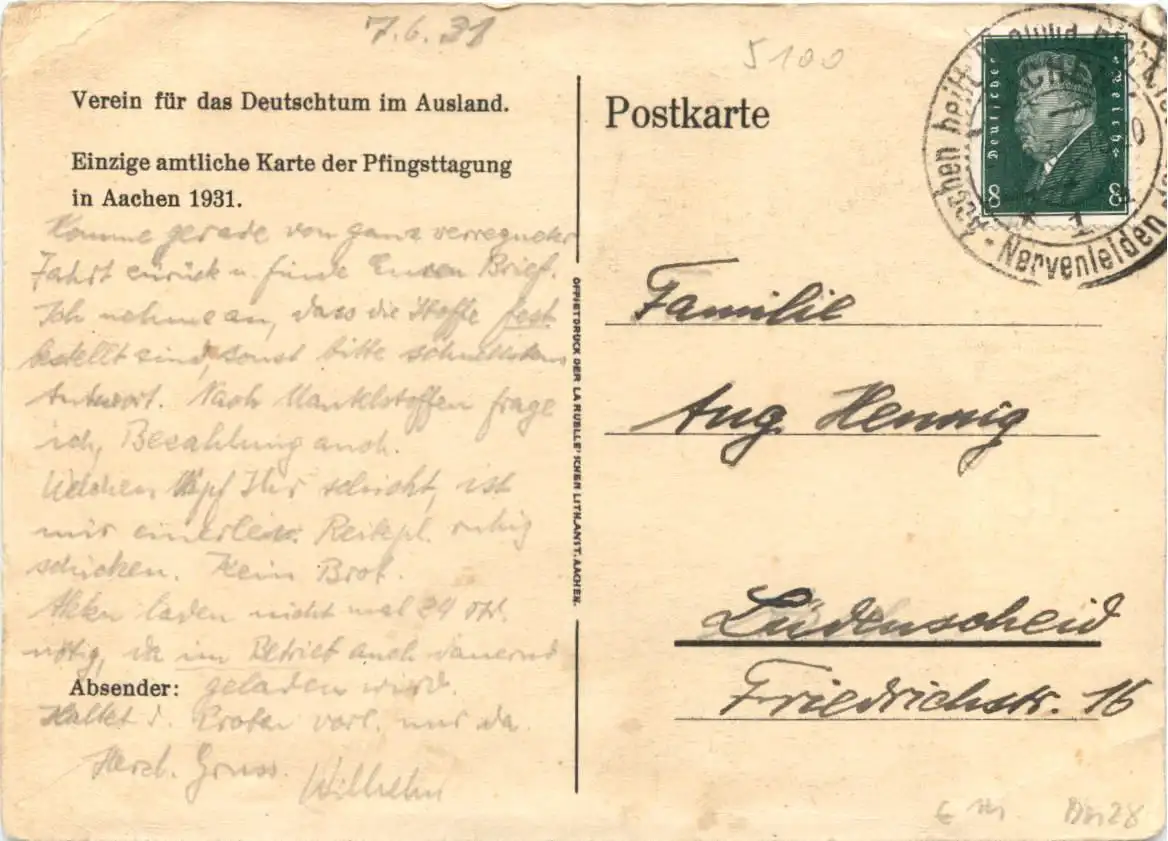 7.6.31
5100
Verein für das Deutschtum im Ausland.
Einzige amtliche Karte der Pfingsttagung
in Aachen 1931.
Komme gerade von ganz verregneter
Fahrt zurück u. finde Euren Brief.
Ich nehme an, dass die Stoffe fest
bestellt sind, sonst bitte schnellstens
Antwort. Nach Mantelstoffen frage
ich, Bezahlung auch.
Welchen Ihr schickt, ist
mir einerlei. ruhig
schicken. Kein Brot.
laden nicht mal 24
nötig, da im Betrieb auch dauernd
Absender: geladen wird.
Haltet d. vorl. nur da.
Herzl. Gruss. Wilhelm
OFFSETDRUCK DER LA RUELLE'SCHEN LITH. ANST. AACHEN.
Postkarte
Deutsches Reich
8 8
Aachen heilt
Nervenleiden
Familie
Aug. Hennig
Lüdenscheid
Friedrichstr. 16